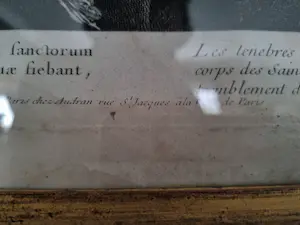 sanctorum
næ fiebant,
Les tenebres
corps des Sain
tremblement d
Paris chez Audran rue St Jacques a la de Paris